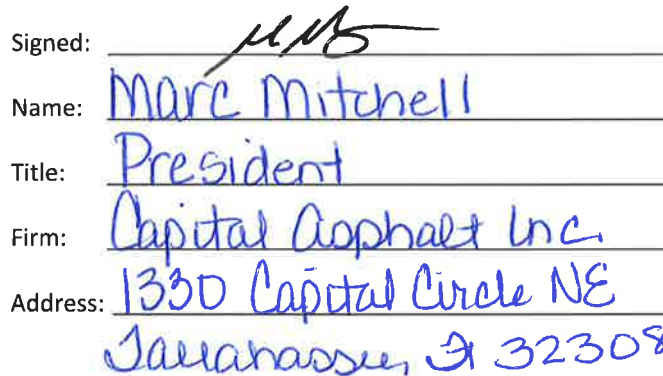 Signed:
Name: Marc Mitchell
Title: President
Firm: Capital Asphalt Inc.
Address: 1330 Capital Circle NE
Tallahassee, Fl 32308